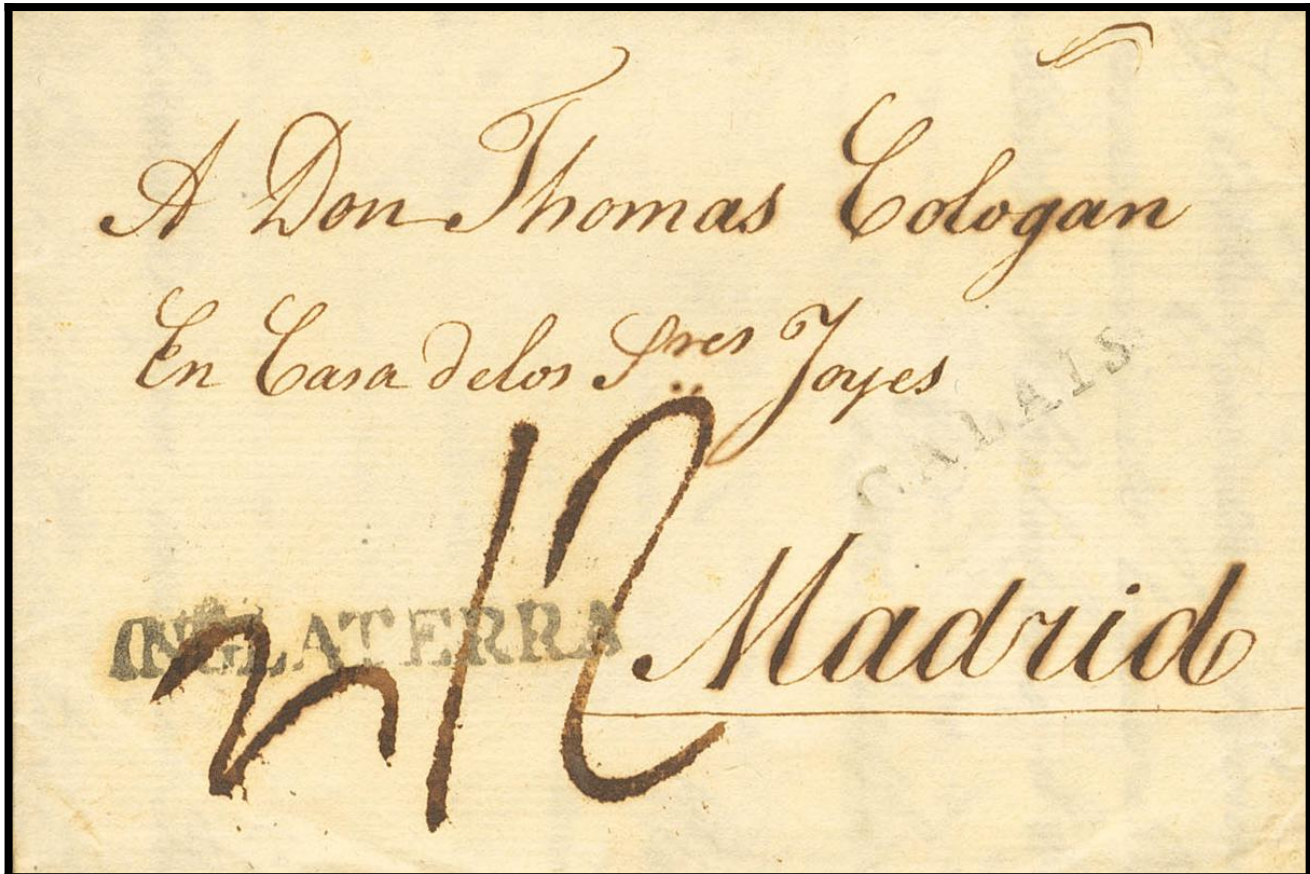 A Don Thomas Cologan
En Casa delos S.res Joyes
CALAIS
INGLATERRA
Madrid